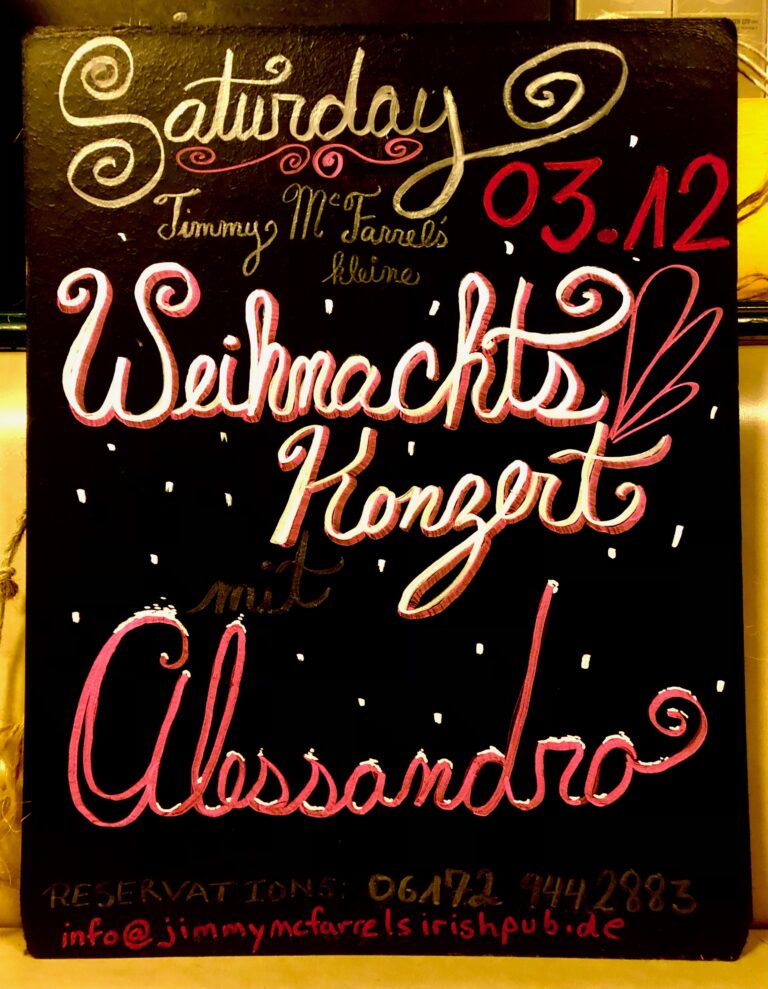 Saturday
03.12
Jimmy McFarrels'
kleine
Weihnachts
Konzert
mit
Alessandro
RESERVATIONS: 06172 9442883
info@jimmymcfarrelsirishpub.de